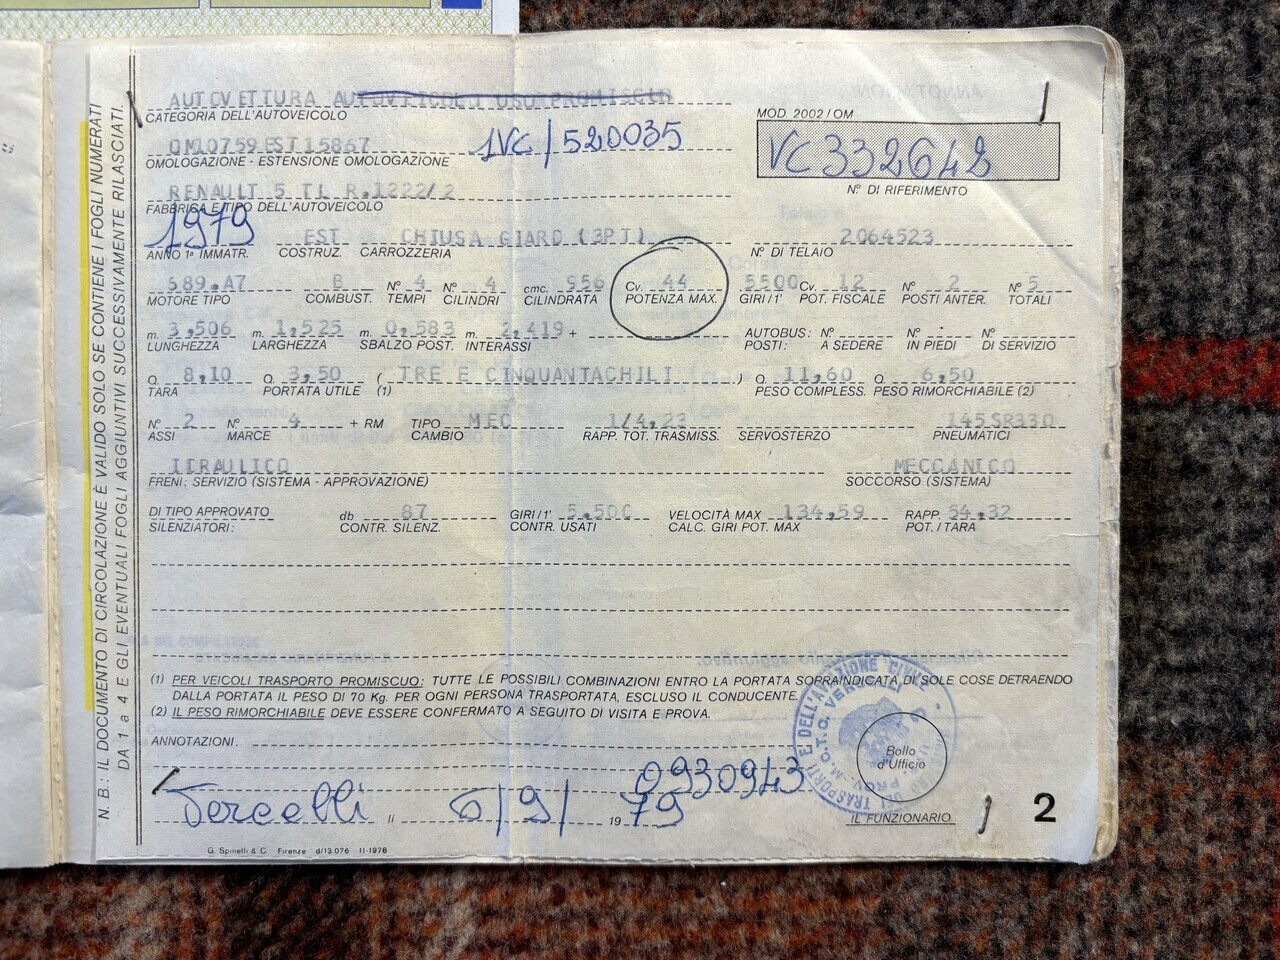 AUTOVETTURA AUTOVEICOLI USO PROMISCUO
CATEGORIA DELL'AUTOVEICOLO
MOD. 2002/OM
OM10759 EST 15867 1VC/520035
OMOLOGAZIONE - ESTENSIONE OMOLOGAZIONE
VC332642
RENAULT 5 TL R.1222/2
N° DI RIFERIMENTO
FABBRICA E TIPO DELL'AUTOVEICOLO
1979 EST CHIUSA GIARD (3PT) 2064523
ANNO 1ª IMMATR. COSTRUZ. CARROZZERIA N° DI TELAIO
689.A7 B N° 4 N° 4 cmc. 956 Cv. 44 5500 Cv. 12 N° 2 N° 5
MOTORE TIPO COMBUST. TEMPI CILINDRI CILINDRATA POTENZA MAX. GIRI/1' POT. FISCALE POSTI ANTER. TOTALI
m. 3,506 m. 1,525 m. 0,583 m. 2,419 + AUTOBUS: N° N° N°
LUNGHEZZA LARGHEZZA SBALZO POST. INTERASSI POSTI: A SEDERE IN PIEDI DI SERVIZIO
Q. 8,10 Q. 3,50 ( TRE E CINQUANTACHILI ) Q. 11,60 Q. 6,50
TARA PORTATA UTILE (1) PESO COMPLESS. PESO RIMORCHIABILE (2)
N° 2 N° 4 + RM TIPO MEC 1/4,23 145SR330
ASSI MARCE CAMBIO RAPP. TOT. TRASMISS. SERVOSTERZO PNEUMATICI
IDRAULICO MECCANICO
FRENI: SERVIZIO (SISTEMA - APPROVAZIONE) SOCCORSO (SISTEMA)
DI TIPO APPROVATO db 87 GIRI/1' 5.500 VELOCITÀ MAX 134,59 RAPP. 54,32
SILENZIATORI: CONTR. SILENZ. CONTR. USATI CALC. GIRI POT. MAX POT./TARA
(1) PER VEICOLI TRASPORTO PROMISCUO: TUTTE LE POSSIBILI COMBINAZIONI ENTRO LA PORTATA SOPRAINDICATA, DI SOLE COSE DETRAENDO
DALLA PORTATA IL PESO DI 70 Kg. PER OGNI PERSONA TRASPORTATA, ESCLUSO IL CONDUCENTE.
(2) IL PESO RIMORCHIABILE DEVE ESSERE CONFERMATO A SEGUITO DI VISITA E PROVA.
ANNOTAZIONI.
Bollo
d'Ufficio
0930943
Vercelli li 6/9/ 19 79
IL FUNZIONARIO
2
G. Spinelli & C. Firenze d/13.076 11-1978
N. B.: IL DOCUMENTO DI CIRCOLAZIONE È VALIDO SOLO SE CONTIENE I FOGLI NUMERATI
DA 1 a 4 E GLI EVENTUALI FOGLI AGGIUNTIVI SUCCESSIVAMENTE RILASCIATI.